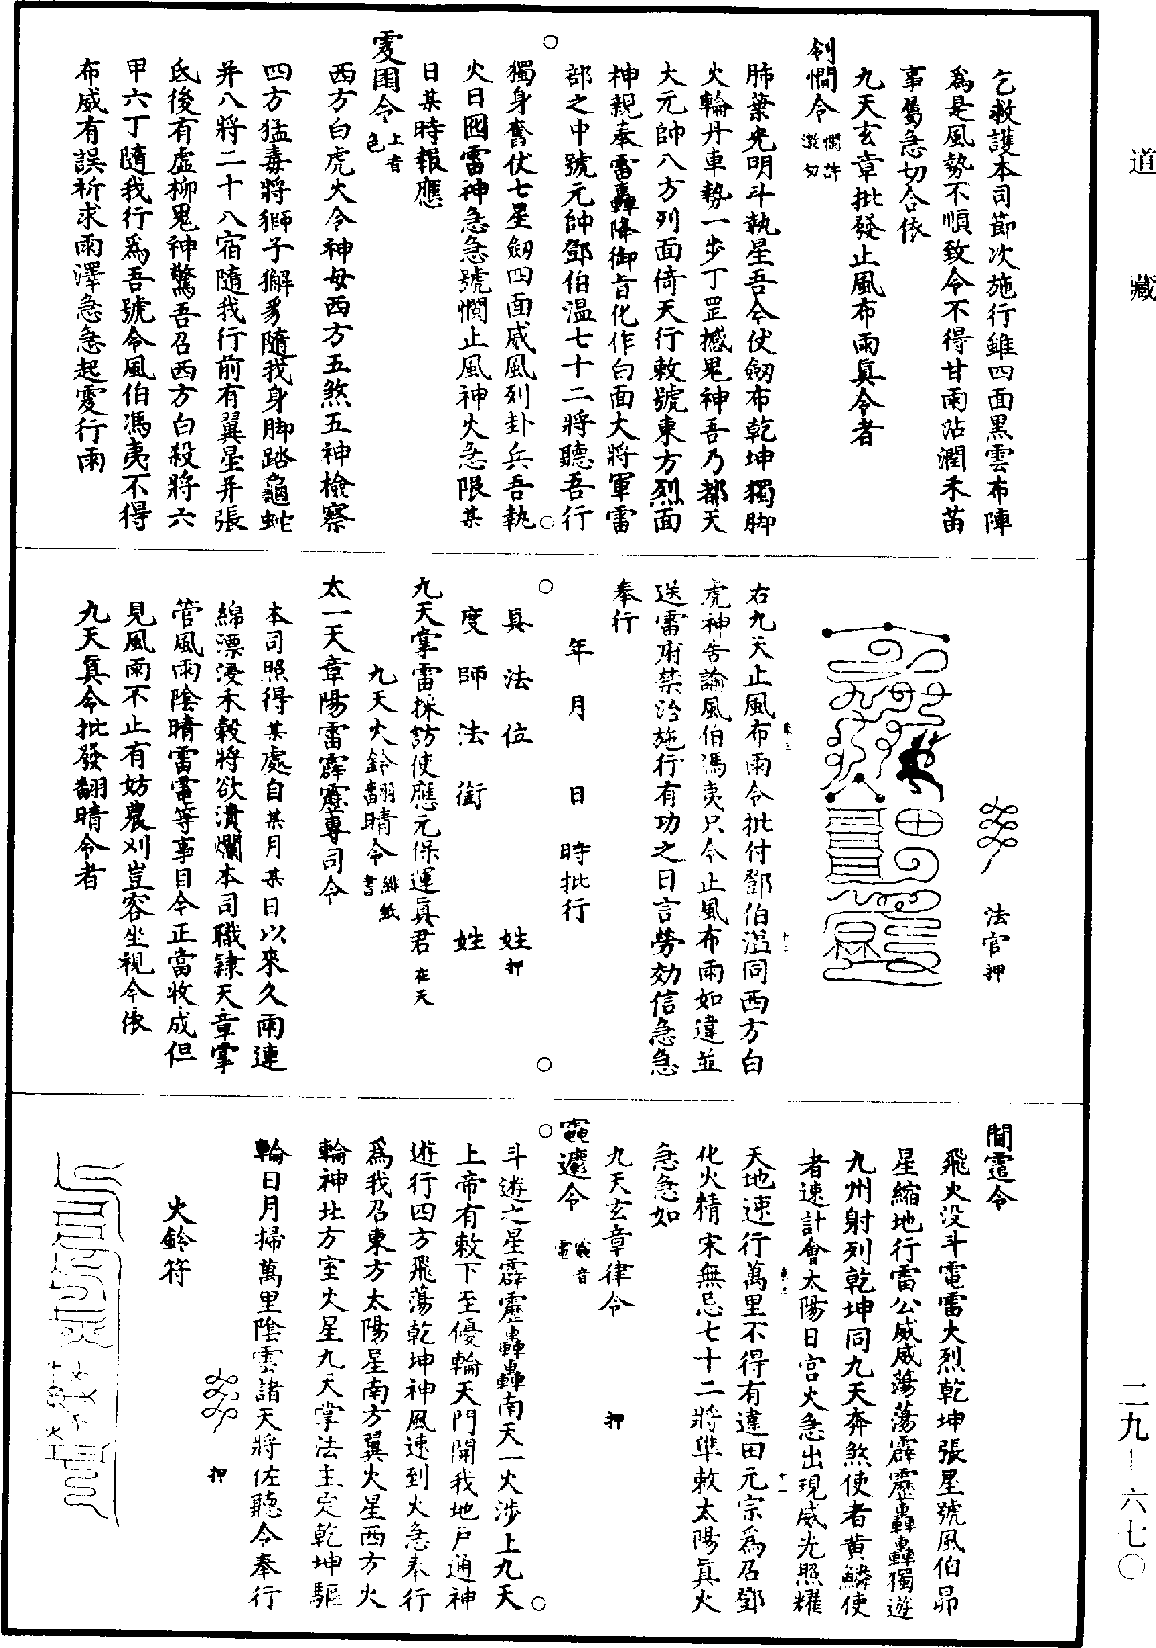 道藏
乞救護本司節次施行雖四面黑雲布陣
為是風勢不順致令不得甘雨沾潤禾苗
事屬急切合依
九天玄章批發止風布雨真令者
憪令
肺葉光明斗執星吾令仗劒布乾坤獨脚
火輪丹車勢一步丁罡撼鬼神吾乃都天
大元帥八方列面倚天行敕號東方烈面
神親奉雷轟降御旨化作白面大將軍雷
部之中號元帥鄧伯溫七十二將聽吾行
獨身奮仗七星劒四面威風列卦兵吾執
火日囫雷神急急號憪止風神火急限某
日某時報應
囷令上音色
西方白虎火令神母西方五煞五神檢察
四方猛毒將獅子獬豸隨我身脚踏龜蛇
并八將二十八宿隨我行前有翼星并張
氐後有虛柳鬼神驚吾召西方白殺將六
甲六丁隨我行為吾號令風伯馮夷不得
布威有誤祈求雨澤急急起霎行雨
法官押
右九天止風布雨令批付鄧伯溫同西方白
虎神告諭風伯馮夷只今止風布雨如違並
送雷府禁治施行有功之日言勞効信急急
奉行
年月日時批行
具法位姓押
度師法銜姓
九天掌雷採訪使應元保運真君在天
九天火鈴翻晴令緋紙書
太一天章陽雷霹靂專司令
本司照得某處自某月某日以來久雨連
綿漂浸禾穀將欲潰爛本司職隷天章掌
管風雨陰晴雷電等事目今正當收成但
見風雨不止有妨農刈豈容坐視今依
九天真令批發翻晴令者
令
飛火没斗電雷大烈乾坤張星號風伯昴
星縮地行雷公威威蕩蕩霹靂轟轟獨遊
九州射列乾坤同九天奔煞使者黄鱗使
者速計會太陽日宫火急出現威光照耀
天地速行萬里不得有違田元宗為召鄧
化火精宋無忌七十二將準敕太陽真火
急急如
九天玄章律令押
令
斗逰之星霹靂轟轟南天一火涉上九天
上帝有敕下至優輪天門開我地戶通神
逰行四方飛蕩乾坤神風速到火急奉行
為我召東方太陽星南方翼火星西方火
輪神北方室火星九天掌法主定乾坤驅
輪日月掃萬里陰雲諸天將佐聽令奉行
押
火鈴符
二九—六七〇